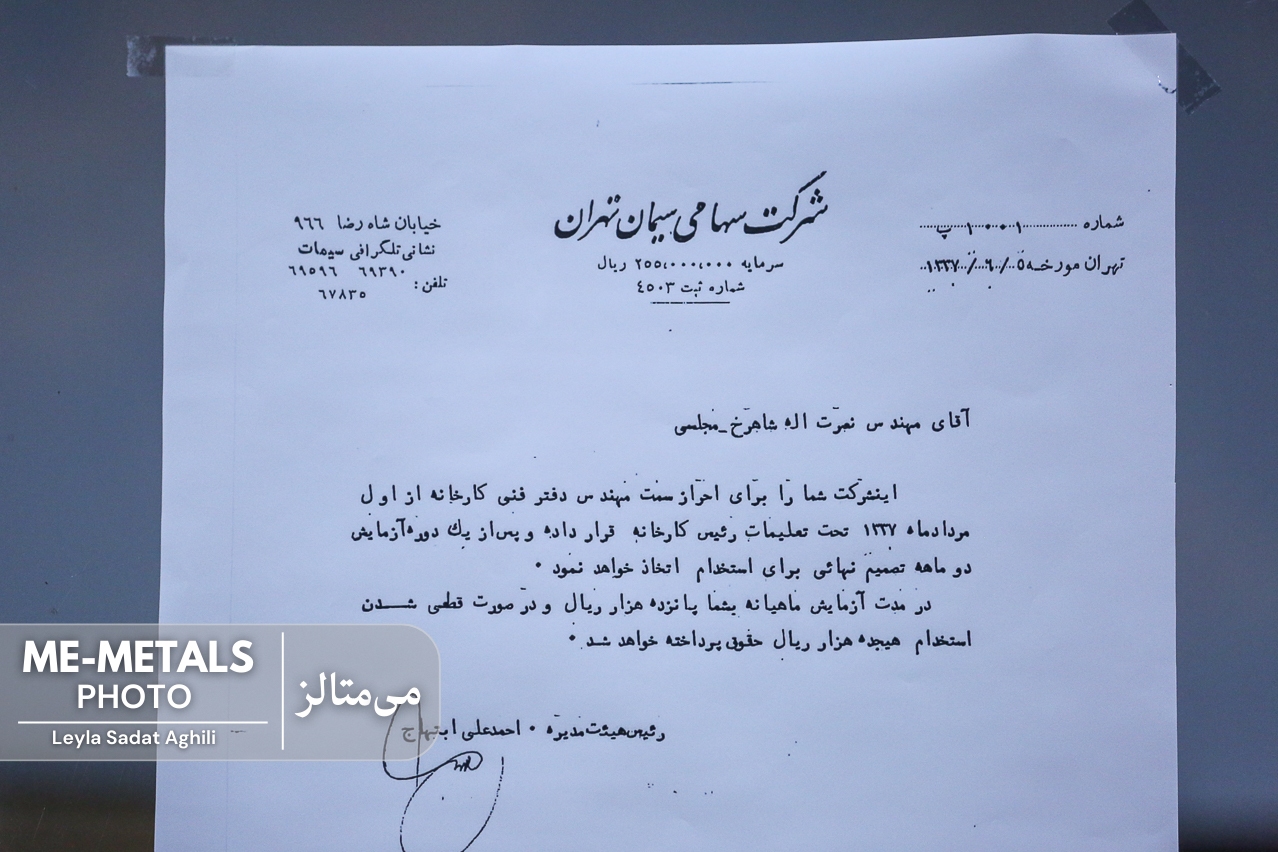 شرکت سهامی سیمان تهران
سرمایه ۲۵۵،۰۰۰،۰۰۰ ریال
شماره ثبت ۴۵۰۳
شماره ۱۰۰۰۱ پ
تهران مورخه ۱۳۳۷/۶/۵
خیابان شاه رضا ۹۶۶
نشانی تلگرافی سیمات
تلفن: ۶۹۳۹۰ ۶۹۵۹۶
۶۷۸۳۵
آقای مهندس نصرت اله شاهرخ ـ مجلسی
اینشرکت شما را برای احراز سمت مهندس دفتر فنی کارخانه از اول
مردادماه ۱۳۳۷ تحت تعلیمات رئیس کارخانه قرار داده و پس از یك دوره آزمایش
دو ماهه تصمیم نهائی برای استخدام اتخاذ خواهد نمود ۰
در مدت آزمایش ماهیانه بشما پانزده هزار ریال و در صورت قطعی شدن
استخدام هیجده هزار ریال حقوق پرداخته خواهد شد ۰
رئیس هیئت مدیره ۰ احمدعلی ابتهاج
ME-METALS
PHOTO
Leyla Sadat Aghili
می‌متالز